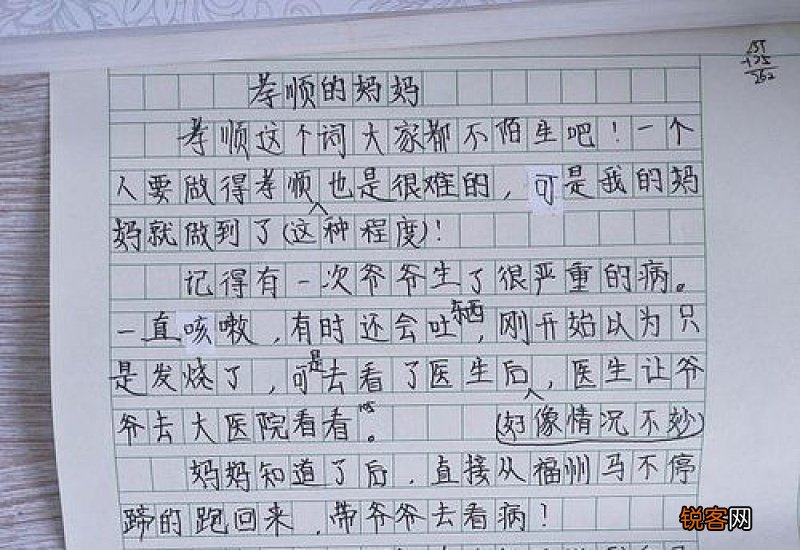 孝顺的妈妈
孝顺这个词大家都不陌生吧！一个
人要做得孝顺也是很难的，可是我的妈
妈就做到了(这种程度)！
记得有一次爷爷生了很严重的病。
一直咳嗽，有时还会吐东西，刚开始以为只
是发烧了，可是去看了医生后，医生让爷
爷去大医院看看。
(好像情况不妙)
妈妈知道了后，直接从福州马不停
蹄的跑回来，带爷爷去看病！
锐客网